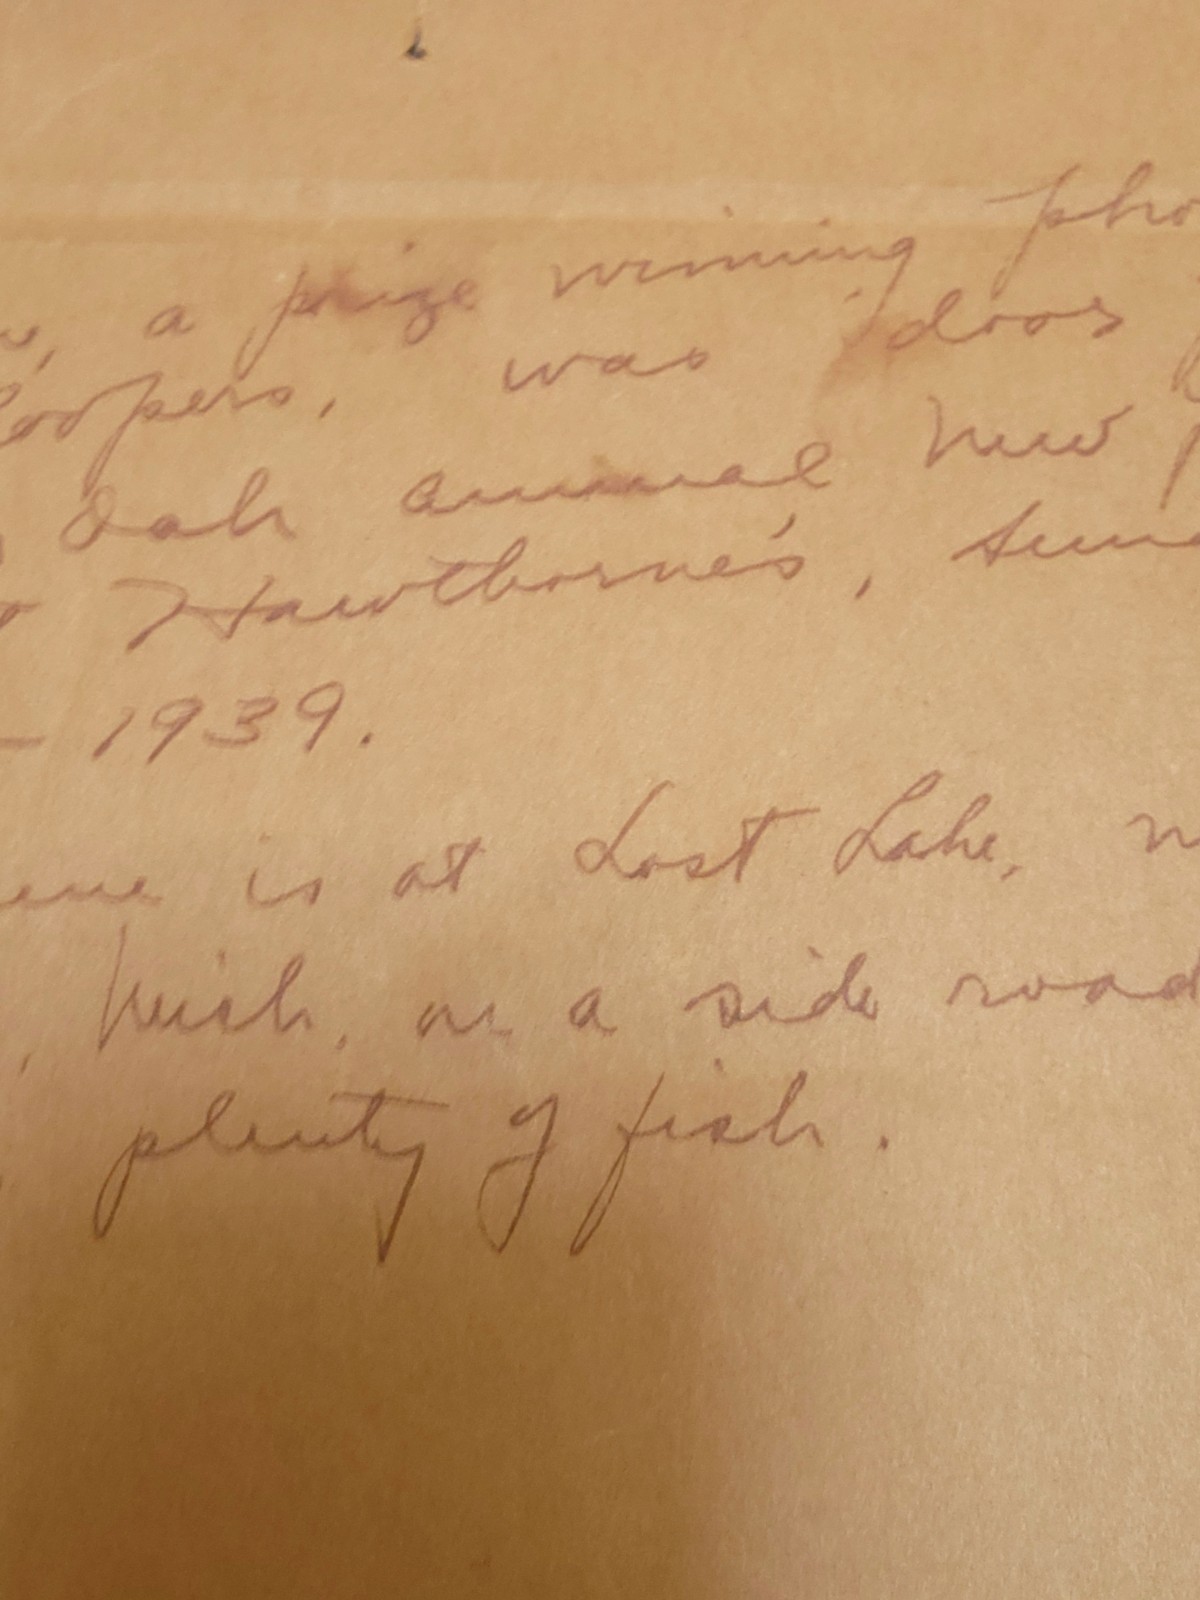 a prize winning pho
Coopers, was door
annual New
Hawthorne's,
- 1939.
is at Lost Lake,
, Mich, on a side road
plenty of fish.